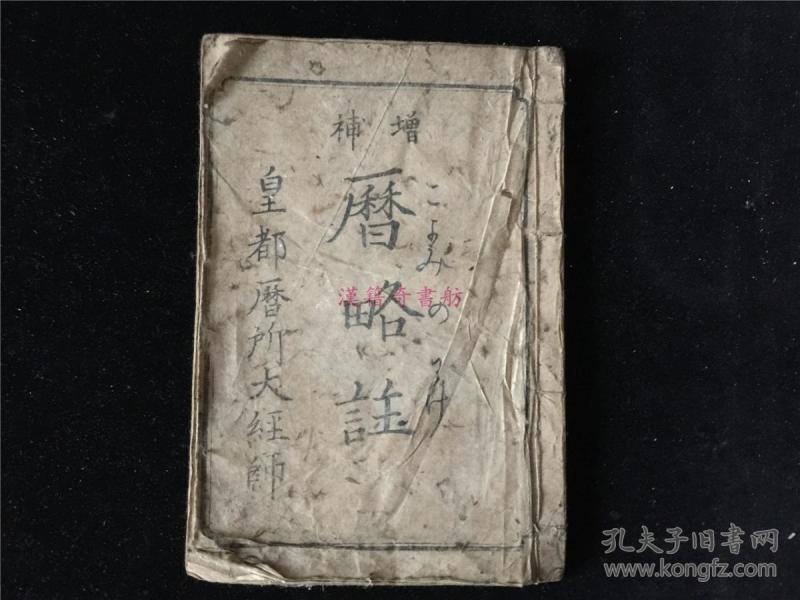 増補
こよみのわけ
暦略註
皇都暦所大経師
漢籍奇書舫
孔夫子旧书网
www.kongfz.com